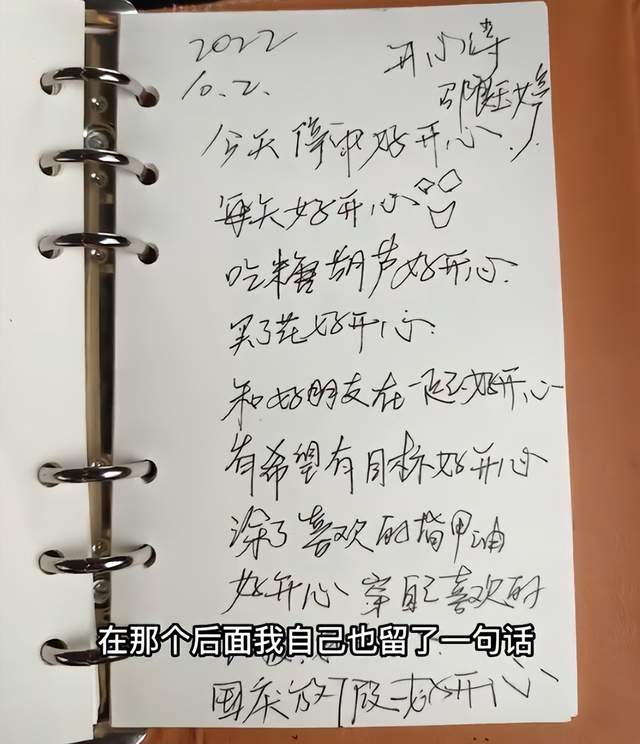 2022
10.2.
开心婷
邵钰婷
今天停电好开心
每天好开心
吃糖葫芦好开心
买了花好开心
和好朋友在一起好开心
有希望有目标好开心
涂了喜欢的指甲油
好开心 穿自己喜欢的
在那个后面我自己也留了一句话
国庆放了假 好开心